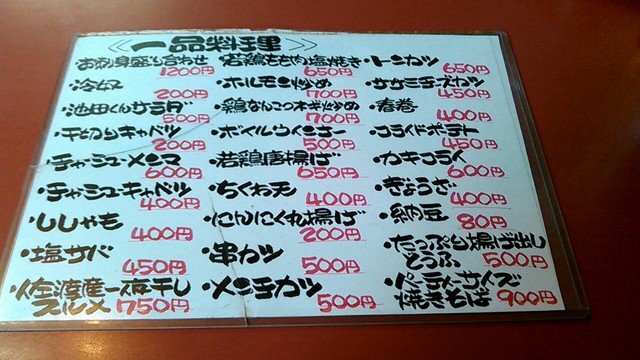 《一品料理》
お刺身盛り合わせ
1200円
・冷奴
200円
・池田くんサラダ
500円
キャベツ
200円
・チャーシューメンマ
600円
・チャーシューキャベツ
400円
・ししゃも
400円
・塩サバ
450円
・佐渡産一夜干し
スルメ 750円
・若鶏もも肉塩焼き
650円
・ホルモン炒め
700円
・鶏なんこつネギ炒め
700円
・ボイルウインナー
500円
・若鶏唐揚げ
650円
・ちくわ天
400円
・にんにく丸揚げ
200円
・串カツ
500円
・メンチカツ
500円
・トンカツ
650円
・ササミチーズカツ
450円
・春巻
400円
・フライドポテト
450円
・カキフライ
600円
・ぎょうざ
400円
・納豆
80円
・たっぷり揚げ出し
とうふ 500円
・パーティーサイズ
焼きそば 900円